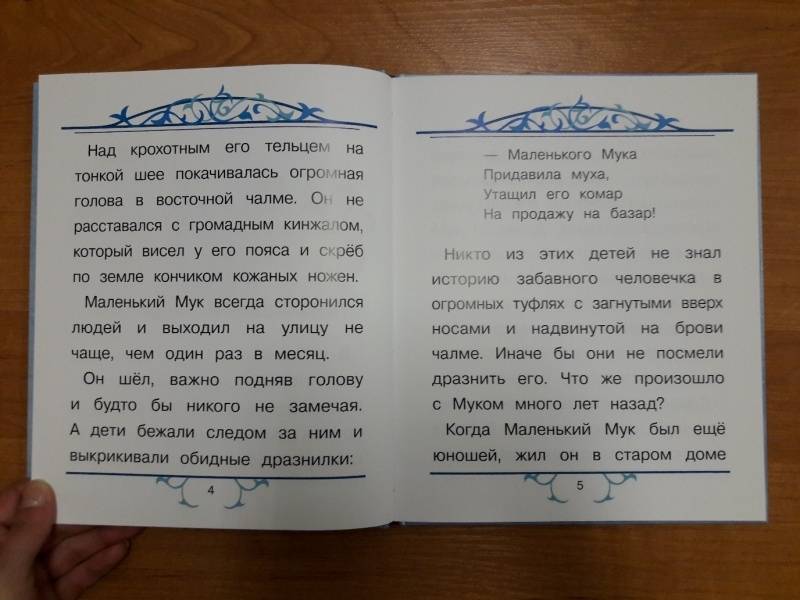 Над крохотным его тельцем на
тонкой шее покачивалась огромная
голова в восточной чалме. Он не
расставался с громадным кинжалом,
который висел у его пояса и скрёб
по земле кончиком кожаных ножен.
Маленький Мук всегда сторонился
людей и выходил на улицу не
чаще, чем один раз в месяц.
Он шёл, важно подняв голову
и будто бы никого не замечая.
А дети бежали следом за ним и
выкрикивали обидные дразнилки:
4
— Маленького Мука
Придавила муха,
Утащил его комар
На продажу на базар!
Никто из этих детей не знал
историю забавного человечка в
огромных туфлях с загнутыми вверх
носами и надвинутой на брови
чалме. Иначе бы они не посмели
дразнить его. Что же произошло
с Муком много лет назад?
Когда Маленький Мук был ещё
юношей, жил он в старом доме
5